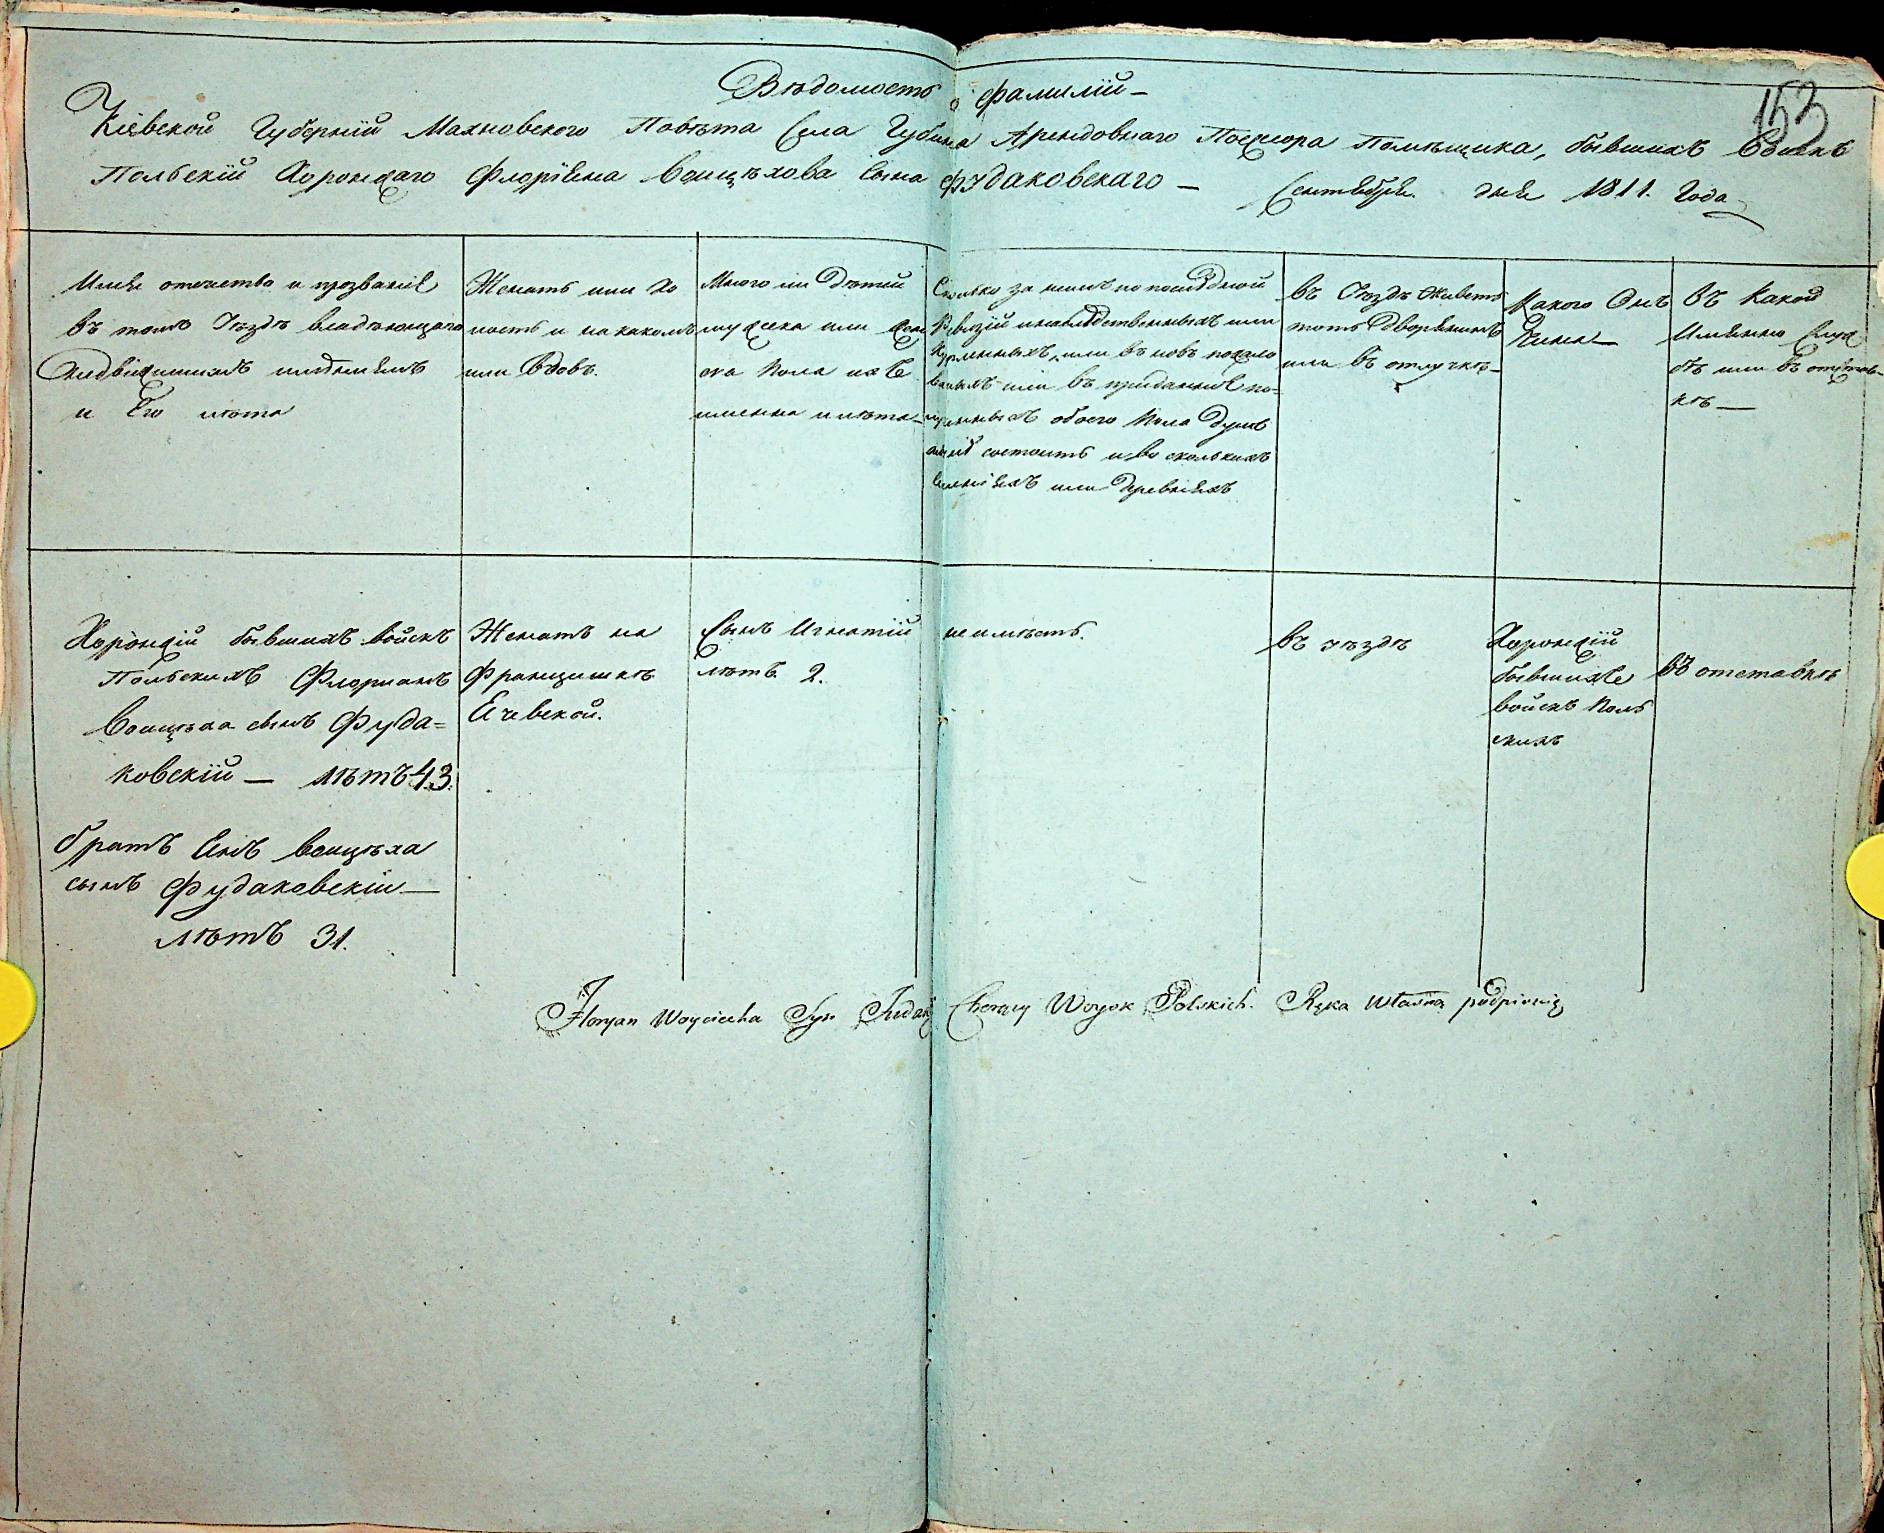 Вѣдомость о фамилiи
153
Кiевской Губернiи Махновского Повѣта Села Губина Арендовнаго Поссесора Помѣщика, бывшихъ Войскъ
Польскiй Хоронжаго Флорiяна Воицѣхова сына Фудаковскаго — Сентября дня 1811. Года
Имя отечество и прозванiе
въ томъ Уѣздѣ владѣющаго
недвижимымъ имѣнiемъ
и Его лѣта
Женатъ или хо
лостъ и на какомъ
или вдовъ.
Много ли Дѣтей
мужска или жен
ска пола ихъ
имена и лѣта
Сколько за нимъ по последной
Ревизiи наследственныхъ или
купленныхъ, или въ новь пожало
ванныхъ или въ приданное по=
лученныхъ обоего пола душъ
состоитъ и во сколькихъ
селенiяхъ или деревняхъ
въ Уѣздѣ живетъ
тотъ Дворянинъ
или въ отлучкѣ
Какого Онъ
Чина
Въ Какой
Имянно служ
бѣ или въ отстав
кѣ
Хоронжiй бывшихъ войскъ
Польскихъ Флорианъ
Воицѣха сынъ Фуда=
ковскiй — лѣтъ 43.
Женатъ на
Францишкѣ
Ечевской.
Сынъ Игнатiй
лѣтъ 2.
не имѣетъ.
въ уѣздѣ
Хоронжiй
бывшихъ
войскъ поль
скихъ
въ отставкѣ
братъ Янъ Воицѣха
сынъ Фудаковскiй —
лѣтъ 31.
Floryan Woyciecha Syn Chorąży Woysk Polskich. Ręka własną podpisuię